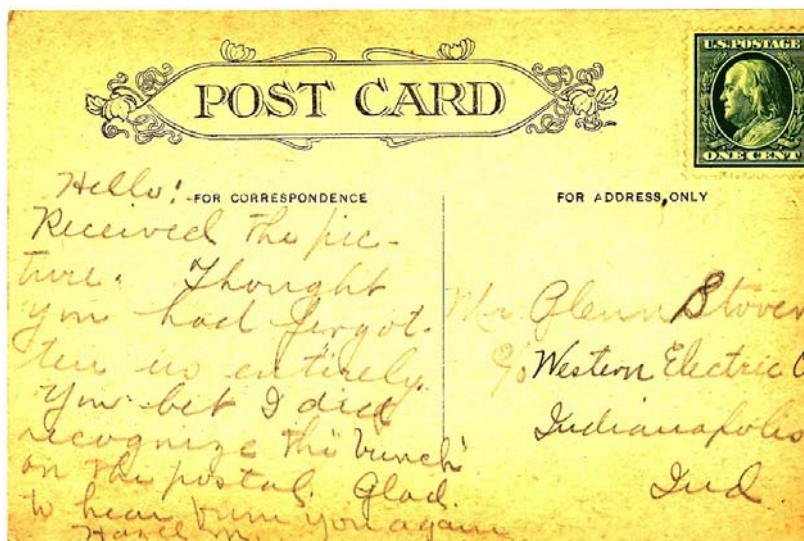 U.S. POSTAGE
ONE CENT
POST CARD
FOR CORRESPONDENCE
FOR ADDRESS ONLY
Hello!
Received the pic-
ture. Thought
you had forgot-
ten us entirely.
You bet I did
recognize the "bunch"
on the postal. Glad
to hear from you again
Hazel M.
Mr Glenn Stover
c/o Western Electric C
Indianapolis
Ind.